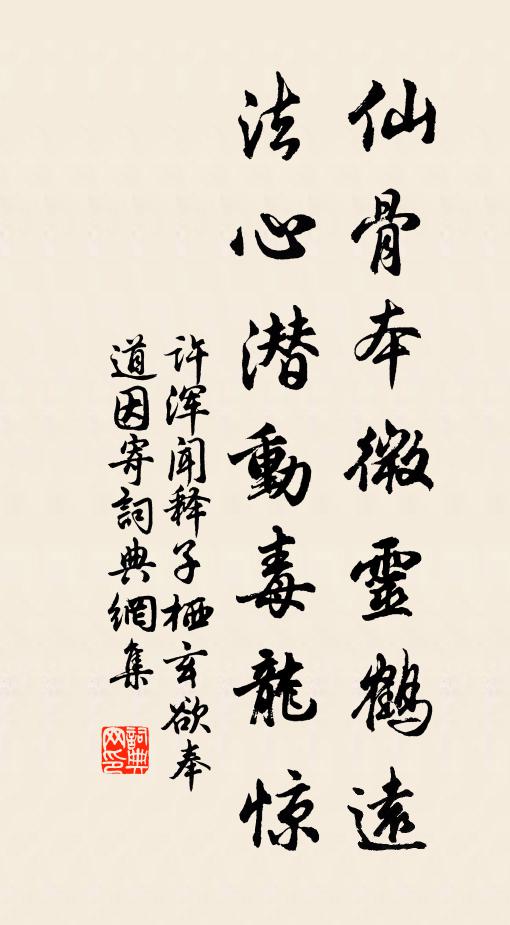 仙骨本微靈鶴遠
法心潜動毒龍惊
许浑闻释子栖玄欲奉
道因寄詞典網集
詞典网印